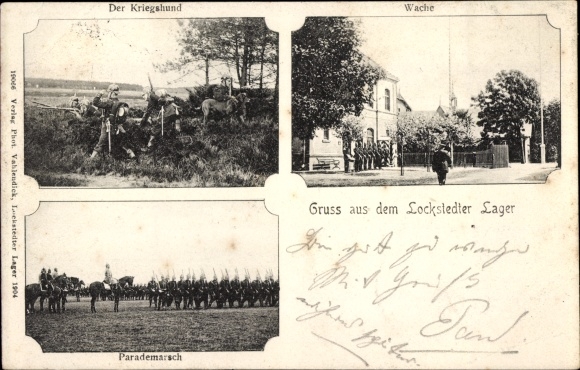 Der Kriegshund
Wache
19066 Verlag Phot. Vahlendick, Lockstedter Lager 1904
Gruss aus dem Lockstedter Lager
Parademarsch
Mit Gruß
Paul